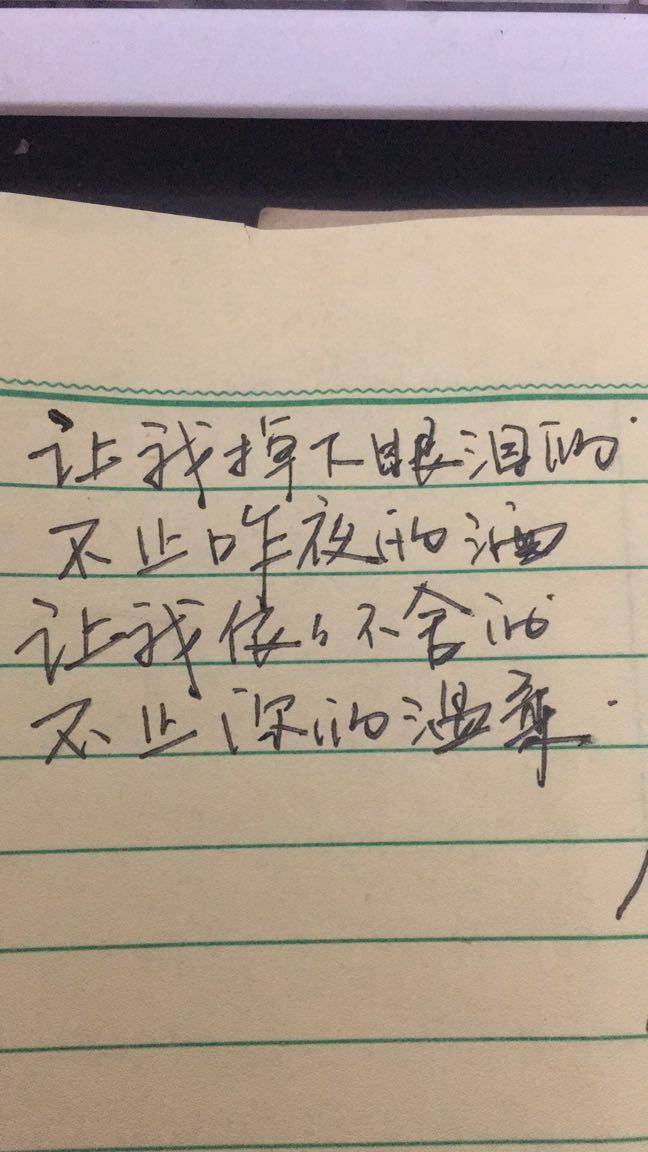 让我掉下眼泪的
不止昨夜的酒
让我依依不舍的
不止你的温柔